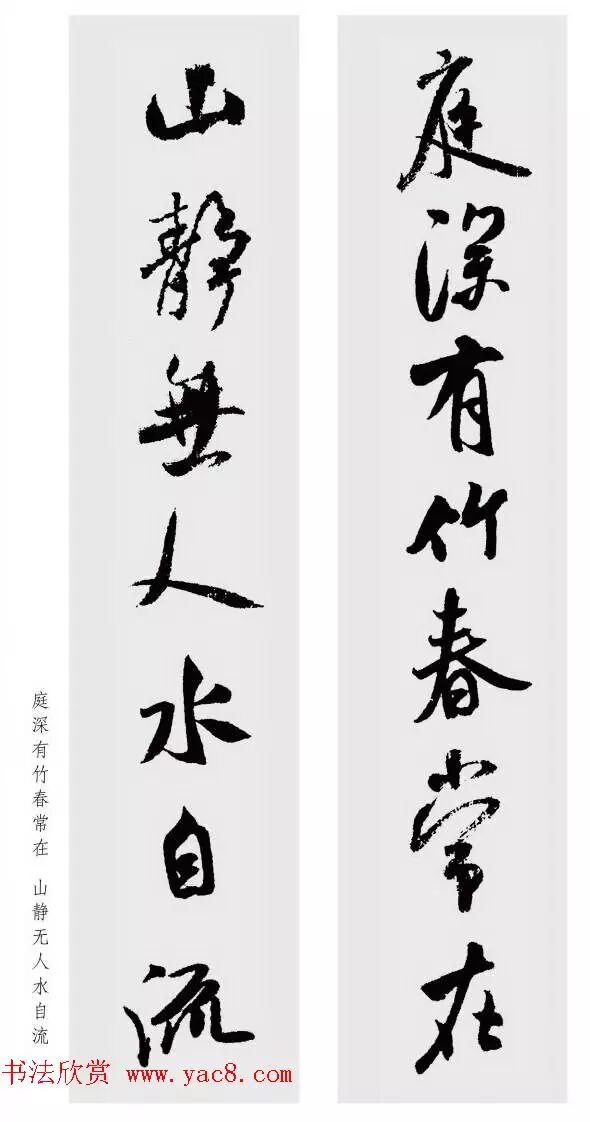 庭深有竹春常在
山静無人水自流
庭深有竹春常在 山静无人水自流
书法欣赏 www.yac8.com